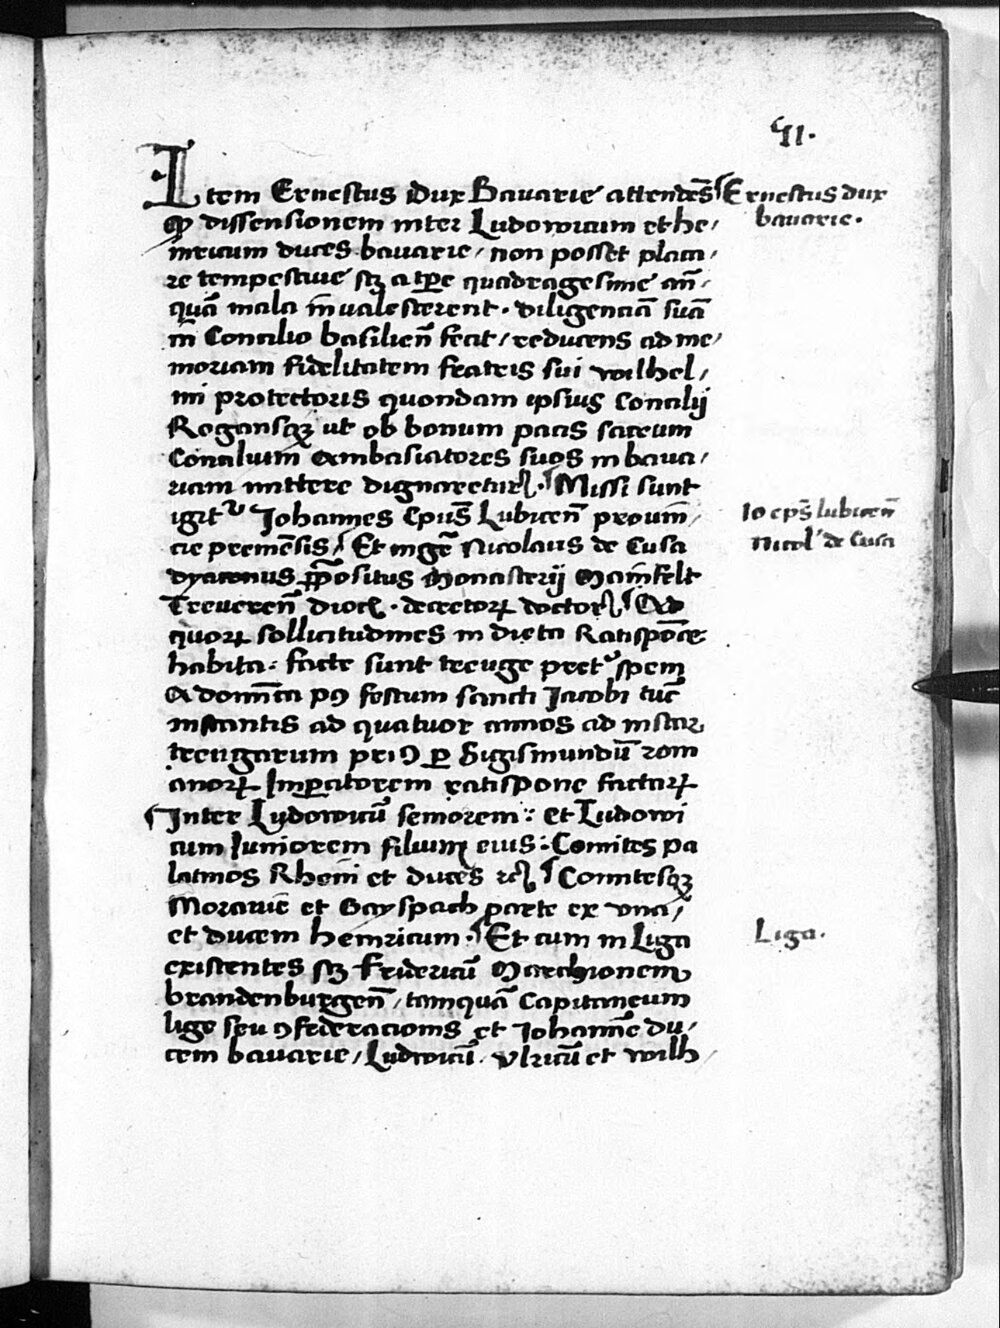 41.
Item Ernestus Dux Bavarie attendēs
Ernestus dux
bavarie.
ꝙ dissensionem inter Ludowicum et he/
inricum duces bavarie / non posset placa/
re tempestiue sꝫ a tꝑe quadragesime an̄/
quā mala īn ualescerent. diligenciā suā
in Concilio basilien̄ fecit / reducens ad me/
moriam fidelitatem fratris sui wilhel/
mi protectoris quondam ipsius Concilij
Rogansqꝫ ut ob bonum pacis sacrum
Concilium Ambasiatores suos in bava/
riam mittere dignaretur. Missi sunt
igitᵘ Johannes Epūs Lubicen̄ prouin̄/
Io epūs lubicen̄
cie premēsis / Et mgr̄ Nicolaus de Cusa
Nicol' de Cusa
dyaconus p̄positus Monasterij Mainfelt
Treueren̄ dioc̄. decretoꝝ doctor Ad
quoꝝ sollicitudines in dieta Ratispōne
habita: facte sunt treuge pretᵘ spem
A domīca pꝰ festum sancti Jacobi tūc
instantis ad quatuor annos ad instar
treugarum priꝰ ꝑ Sigismundū rom
anoꝝ Imꝑatorem ratispone factaꝝ
Inter Lydowicū seniorem: et Ludowi
cum Juniorem filium eius: Comites pa
latinos Rheni et duces rc̄ Comitesqꝫ
Moravie et Gayspach parte ex una /
et ducem heinricum. Et cum in Liga
Liga.
existentes sꝫ fridericū Marchionem
brandenburgen̄ / tamquā Capitaneum
lige seu ꝯfederacionis et Johannē du/
cem bavarie / Ludwicū. Vlricū et wilh